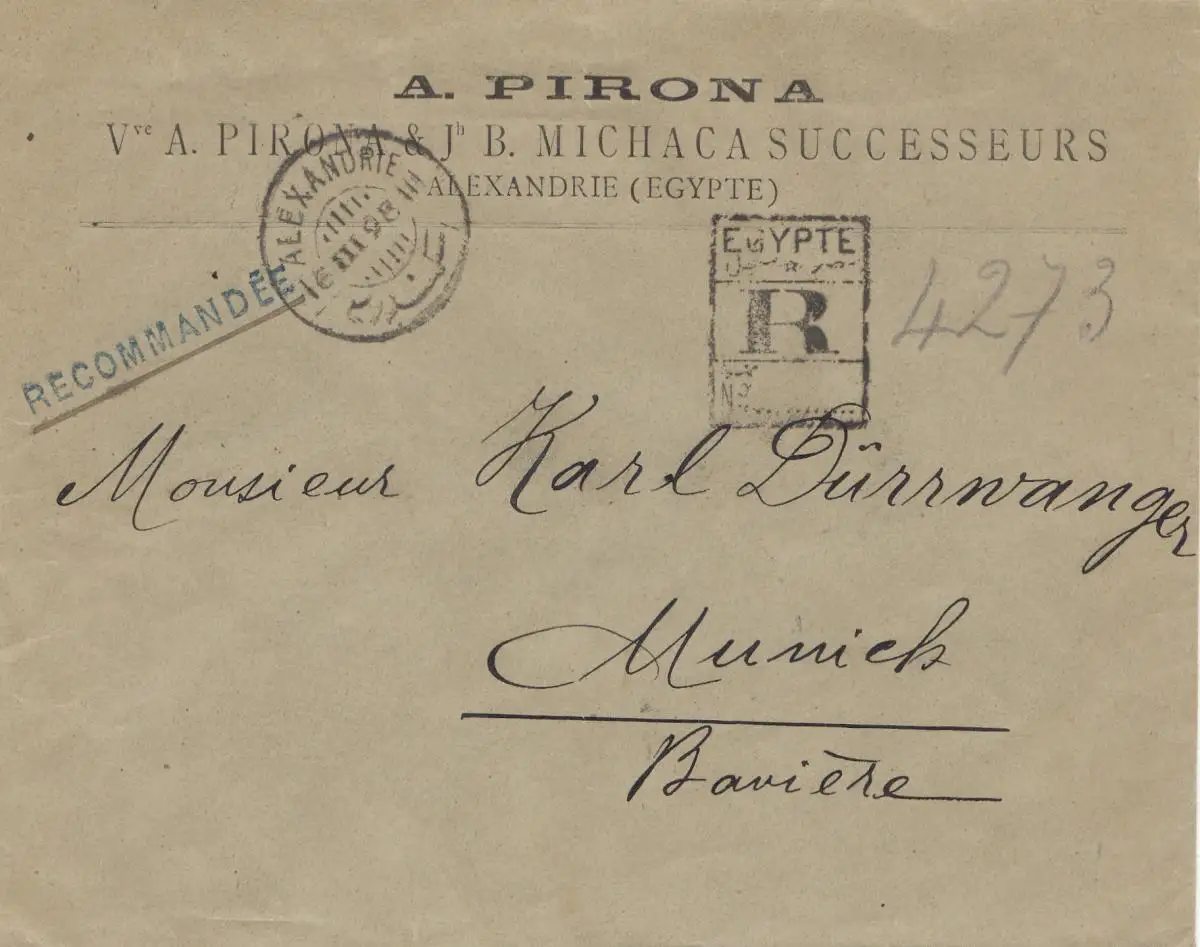 A. PIRONA
Vve A. PIRONA & Jh B. MICHACA SUCCESSEURS
ALEXANDRIE (EGYPTE)
ALEXANDRIE
III 98
RECOMMANDÉE
EGYPTE
R
No
4273
Monsieur Karl Dürrwanger
Munich
Bavière